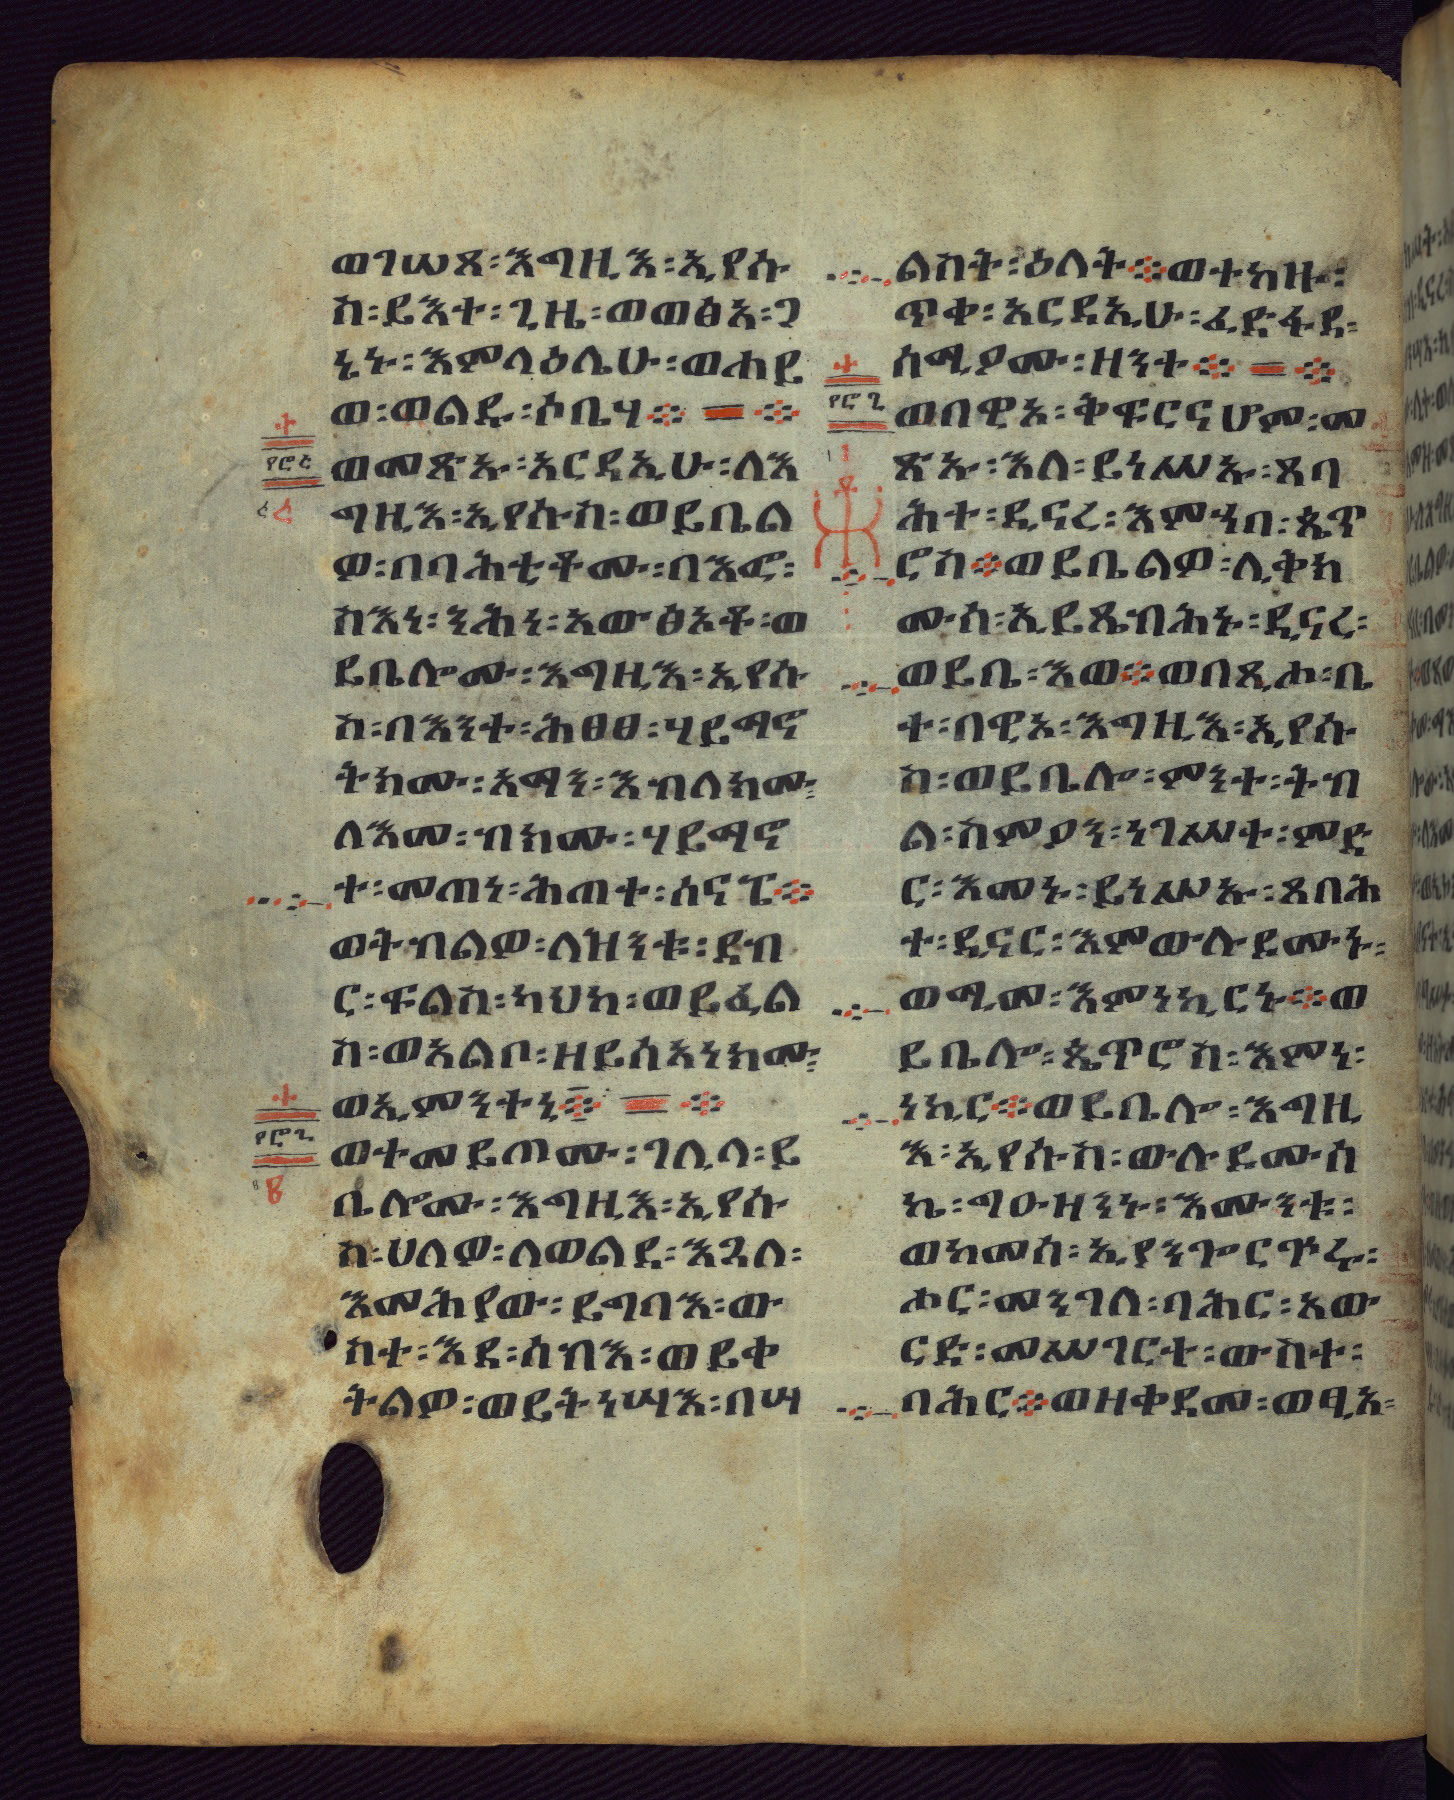 ወገሠጸ፡እግዚእ፡ኢየሱ
ስ፡ይእተ፡ጊዜ፡ወወፅአ፡ጋ
ኔኑ፡እምላዕሌሁ፡ወሐይ
ወ፡ወልዱ፡ሶቤሃ፨ = ፨
ወመጽኡ፡አርዳኢሁ፡ለእ
ግዚእ፡ኢየሱስ፡ወይቤል
ዎ፡በባሕቲቶሙ፡በእፎ፡
ስእነ፡ንሕነ፡አውፅአቶ፡ወ
ይቤሎሙ፡እግዚእ፡ኢየሱ
ስ፡በእንተ፡ሕፀፀ፡ሃይማኖ
ትክሙ፡አማን፡እብለክሙ፡
ለእመ፡ብክሙ፡ሃይማኖ
ተ፡መጠነ፡ሕጠተ፡ሰናፔ፨
ወትብልዎ፡ለዝንቱ፡ደብ
ር፡ፍልስ፡ካህክ፡ወይፈል
ስ፡ወአልቦ፡ዘይሰአነክሙ፡
ወኢምንተኒ፨ = ፨
ወተመይጦሙ፡ገሊላ፡ይ
ቤሎሙ፡እግዚእ፡ኢየሱ
ስ፡ሀለዎ፡ለወልደ፡እጓለ፡
እመሕያው፡ይግባእ፡ው
ስተ፡እደ፡ሰብእ፡ወይቀ
ትልዎ፡ወይትነሣእ፡በሣ
ልስት፡ዕለት፨ወተከዙ፡
ጥቀ፡አርዳኢሁ፡ፈድፋደ፡
ሰሚዖሙ፡ዘንተ፨ = ፨
ወበዊአ፡ቅፍርናሆም፡መ
ጽኡ፡እለ፡ይነሥኡ፡ጸባ
ሕተ፡ዲናረ፡እምኀበ፡ጴጥ
ሮስ፨ወይቤልዎ፡ሊቅክ
ሙሰ፡ኢይጼብሕኑ፡ዲናረ፡
ወይቤ፡እወ፨ወበጺሖ፡ቤ
ተ፡በዊኦ፡እግዚእ፡ኢየሱ
ስ፡ወይቤሎ፡ምንተ፡ትብ
ል፡ስምዖን፡ነገሥተ፡ምድ
ር፡እመኑ፡ይነሥኡ፡ጸባሕ
ተ፡ዲናር፡እምውሉዶሙኑ፡
ወሚመ፡እምነኪርኑ፨ወ
ይቤሎ፡ጴጥሮስ፡እምነ፡
ነኪር፨ወይቤሎ፡እግዚ
እ፡ኢየሱስ፡ውሉዶሙሰ
ኬ፡ግዑዛንኑ፡እሙንቱ፡
ወከመሰ፡ኢያንጐርጕሩ፡
ሖር፡መንገለ፡ባሕር፡አው
ርድ፡መሥገርተ፡ውስተ፡
ባሕር፨ወዘቀደመ፡ወፂአ፡